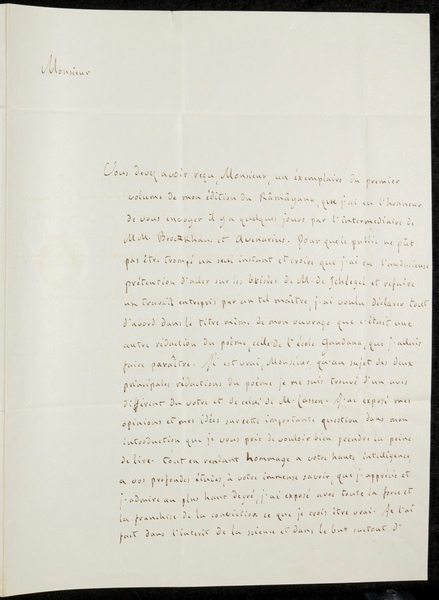 Monsieur
Vous devez avoir reçu, Monsieur, un éxemplaire du premier
volume de mon édition du Râmâyana, que j'ai eu l'honneur
de vous envoyer il y a quelques jours par l'intermédiaire de
M.M. Brockhaus et Avenarius. Pour que le public ne pût
pas être trompé un seul instant et croire que j'ai eu l'audacieuse
prétention d'aller sur les brisées de M. de Schlegel et refaire
un travail entrepris par un tel maître, j'ai voulu déclarer tout
d'abord dans le titre même de mon ouvrage que c'était une
autre rédaction du poème, celle de l'école Gaudana, que j'allais
faire paraître. Il est vrai, Monsieur, qu'au sujet des deux
principales rédactions du poème je me suis trouvé d'un avis
différent du votre et de celui de M. Lassen. J'ai exposé mes
opinions et mes idées sur cette importante question dans mon
introduction que je vous prie de vouloir bien prendre la peine
de lire. Tout en rendant hommage a votre haute intelligence,
a vos profondes études, à votre immense savoir, que j'apprécie et
j'admire au plus haut degré, j'ai exposé avec toute la force et
la franchise de la conviction ce que je crois être vrai. Je l'ai
fait dans l'interêt de la science et dans le but surtout d'